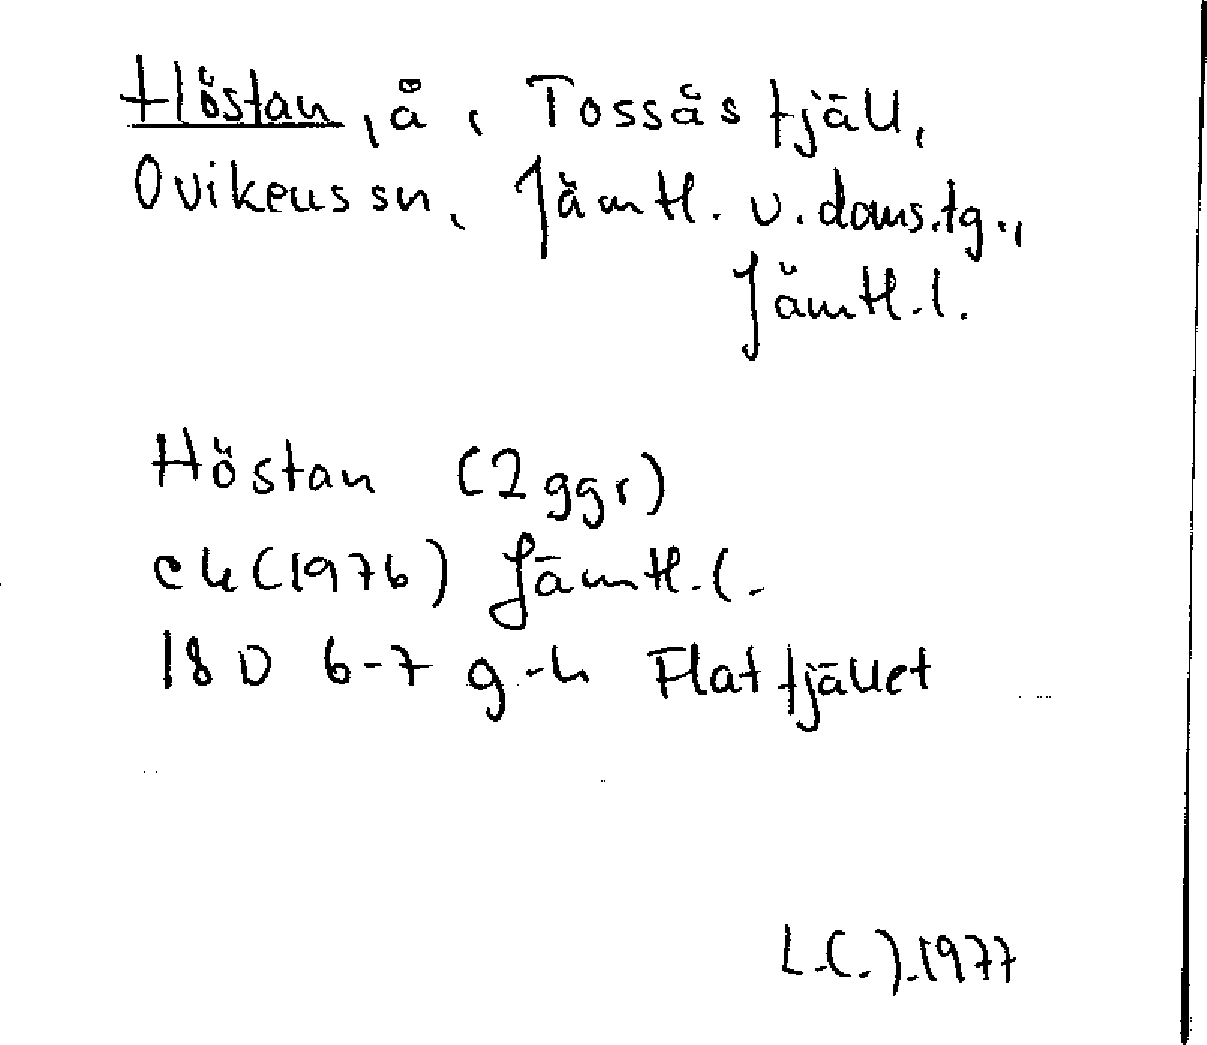 Höstan, å, Tossåsfjäll,
Ovikens sn, Jämtl. v. doms.tg.,
Jämtl. l.
Höstan (2 ggr)
ek (1976) Jämtl. l.
18 D 6-7 g-h Flatfjället
L.C.J. 1977